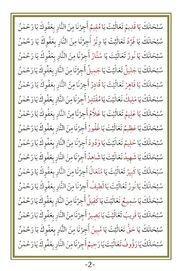 سُبْحَانَكَ يَا قَدِيمُ تَعَالَيْتَ يَا مُقِيمُ أَجِرْنَا مِنَ النَّارِ بِعَفْوِكَ يَا رَحْمٰنُ
سُبْحَانَكَ يَا فَرْدُ تَعَالَيْتَ يَا وِتْرُ أَجِرْنَا مِنَ النَّارِ بِعَفْوِكَ يَا رَحْمٰنُ
سُبْحَانَكَ يَا نُورُ تَعَالَيْتَ يَا سَتَّارُ أَجِرْنَا مِنَ النَّارِ بِعَفْوِكَ يَا رَحْمٰنُ
سُبْحَانَكَ يَا جَلِيلُ تَعَالَيْتَ يَا جَمِيلُ أَجِرْنَا مِنَ النَّارِ بِعَفْوِكَ يَا رَحْمٰنُ
سُبْحَانَكَ يَا قَاهِرُ تَعَالَيْتَ يَا قَادِرُ أَجِرْنَا مِنَ النَّارِ بِعَفْوِكَ يَا رَحْمٰنُ
سُبْحَانَكَ يَا مَلِيكُ تَعَالَيْتَ يَا مُقْتَدِرُ أَجِرْنَا مِنَ النَّارِ بِعَفْوِكَ يَا رَحْمٰنُ
سُبْحَانَكَ يَا عَلِيمُ تَعَالَيْتَ يَا عَلَّامُ أَجِرْنَا مِنَ النَّارِ بِعَفْوِكَ يَا رَحْمٰنُ
سُبْحَانَكَ يَا عَظِيمُ تَعَالَيْتَ يَا غَفُورُ أَجِرْنَا مِنَ النَّارِ بِعَفْوِكَ يَا رَحْمٰنُ
سُبْحَانَكَ يَا حَلِيمُ تَعَالَيْتَ يَا وَدُودُ أَجِرْنَا مِنَ النَّارِ بِعَفْوِكَ يَا رَحْمٰنُ
سُبْحَانَكَ يَا شَهِيدُ تَعَالَيْتَ يَا شَاهِدُ أَجِرْنَا مِنَ النَّارِ بِعَفْوِكَ يَا رَحْمٰنُ
سُبْحَانَكَ يَا كَبِيرُ تَعَالَيْتَ يَا مُتَعَالُ أَجِرْنَا مِنَ النَّارِ بِعَفْوِكَ يَا رَحْمٰنُ
سُبْحَانَكَ يَا نُورُ تَعَالَيْتَ يَا لَطِيفُ أَجِرْنَا مِنَ النَّارِ بِعَفْوِكَ يَا رَحْمٰنُ
سُبْحَانَكَ يَا سَمِيعُ تَعَالَيْتَ يَا كَفِيلُ أَجِرْنَا مِنَ النَّارِ بِعَفْوِكَ يَا رَحْمٰنُ
سُبْحَانَكَ يَا قَرِيبُ تَعَالَيْتَ يَا بَصِيرُ أَجِرْنَا مِنَ النَّارِ بِعَفْوِكَ يَا رَحْمٰنُ
سُبْحَانَكَ يَا حَقُّ تَعَالَيْتَ يَا مُبِينُ أَجِرْنَا مِنَ النَّارِ بِعَفْوِكَ يَا رَحْمٰنُ
سُبْحَانَكَ يَا رَؤُوفُ تَعَالَيْتَ يَا رَحِيمُ أَجِرْنَا مِنَ النَّارِ بِعَفْوِكَ يَا رَحْمٰنُ
-2-